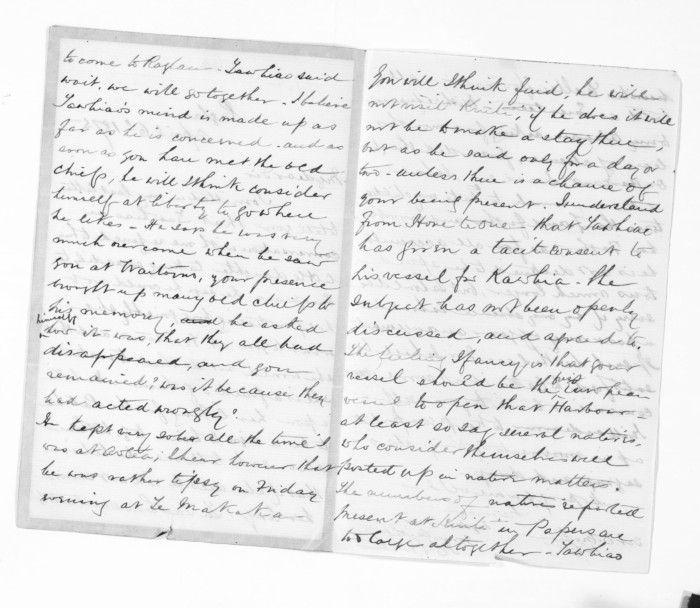 to come to Raglan - Tawhiao said
wait, we will go together - I believe
Tawhiao's mind is made up as
far as he is concerned - and as
soon as you have met the old
Chiefs, he will I think consider
himself at liberty to go where
he likes - He says he was very
much overcome when he saw
you at Waitomo, your presence
brought up many old chiefs to
his memory, and he asked
himself
how it was, that they all had
disappeared, and you
remained? was it because they
had acted wrongly?
He kept very sober all the time I
was at ; I hear however that
he was rather tipsy on Friday
morning at Te Makaka -
You will I think find, he will
not visit Kihikihi, if he does it will
not be to make a stay there,
but as he said only for a day or
two - unless there is a chance of
your being present. I understand
from Hone te One - that Tawhiao
has given a tacit consent to
his vessel for Kawhia. The
subject has not been openly
discussed, and agreed to.
The feeling I fancy is that your
vessel should be the first European
vessel to open that Harbour -
at least so say several natives,
who consider themselves well
posted up in native matters.
The numbers of natives reported
present at in Papers are
too large altogether - Tawhiao